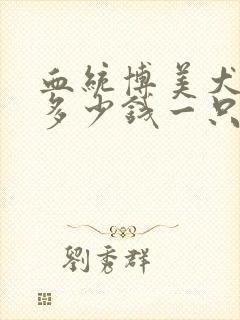 血統博美犬
多少錢一只
劉秀群